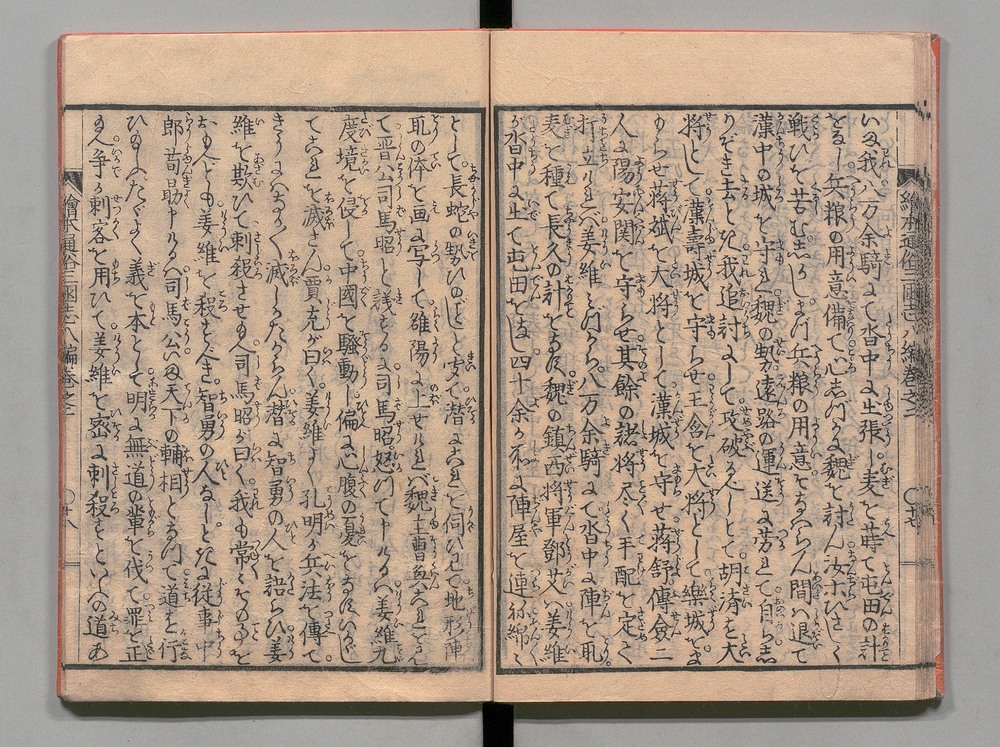 いま我八万余騎にて沓中に出張し。麦を蒔て屯田の計
をなし兵粮の用意備て心静かに魏を討ん汝ホひさしく
戦ひを苦む志かしまづ兵粮の用意をなさん間ハ退て
漢中の城を守れ魏の勢遠路の運送に労れて自ら志
りぞき去とき我追討にして攻破るべしとて胡済を大
将として漢壽城を守らせ王含を大将として樂城をま
もらせ蒋斌を大将として漢城を守せ蒋舒傅僉二
人に陽安関を守らせ其餘の諸将尽く手配を定さく
打立けれバ姜維ミづから八万余騎にて沓中に陣を取
麦を種て長久の計をなす魏の鎮西将軍鄧艾ハ姜維
が沓中に出て屯田をなし四十余か所に陣屋を連ね綿々
として長蛇の勢ひのごとしと聞て潜に人を伺ハせて地形陣
取の体を画に写して雒陽に上せけれバ魏主曹奐大に
て晋公司馬昭と議をなす司馬昭怒つて申けるハ姜維九
度境を侵して中國を騒動し偏に心腹の憂をなすいかゞし
て是を滅さん賈充が曰く姜維よく孔明が兵法を傳て
きうにハたやすく滅しがたからん潜に智勇の人を語らひ姜
維を欺ひて刺殺させ玉へ司馬昭が曰く我も常々その事を
おもへども姜維を殺すべき智勇の人なしとき従事中
郎荀勗申けるハ司馬公ハ天下の輔相となつて道を行
ひ玉ふたゞよく義を本として明に無道の輩を伐て罪を正
玉へ争か刺客を用ひて姜維を密に刺殺すといふの道あ
繪本通俗三國志八編巻之二
○十七
繪本通俗三國志八編巻之二
○十八